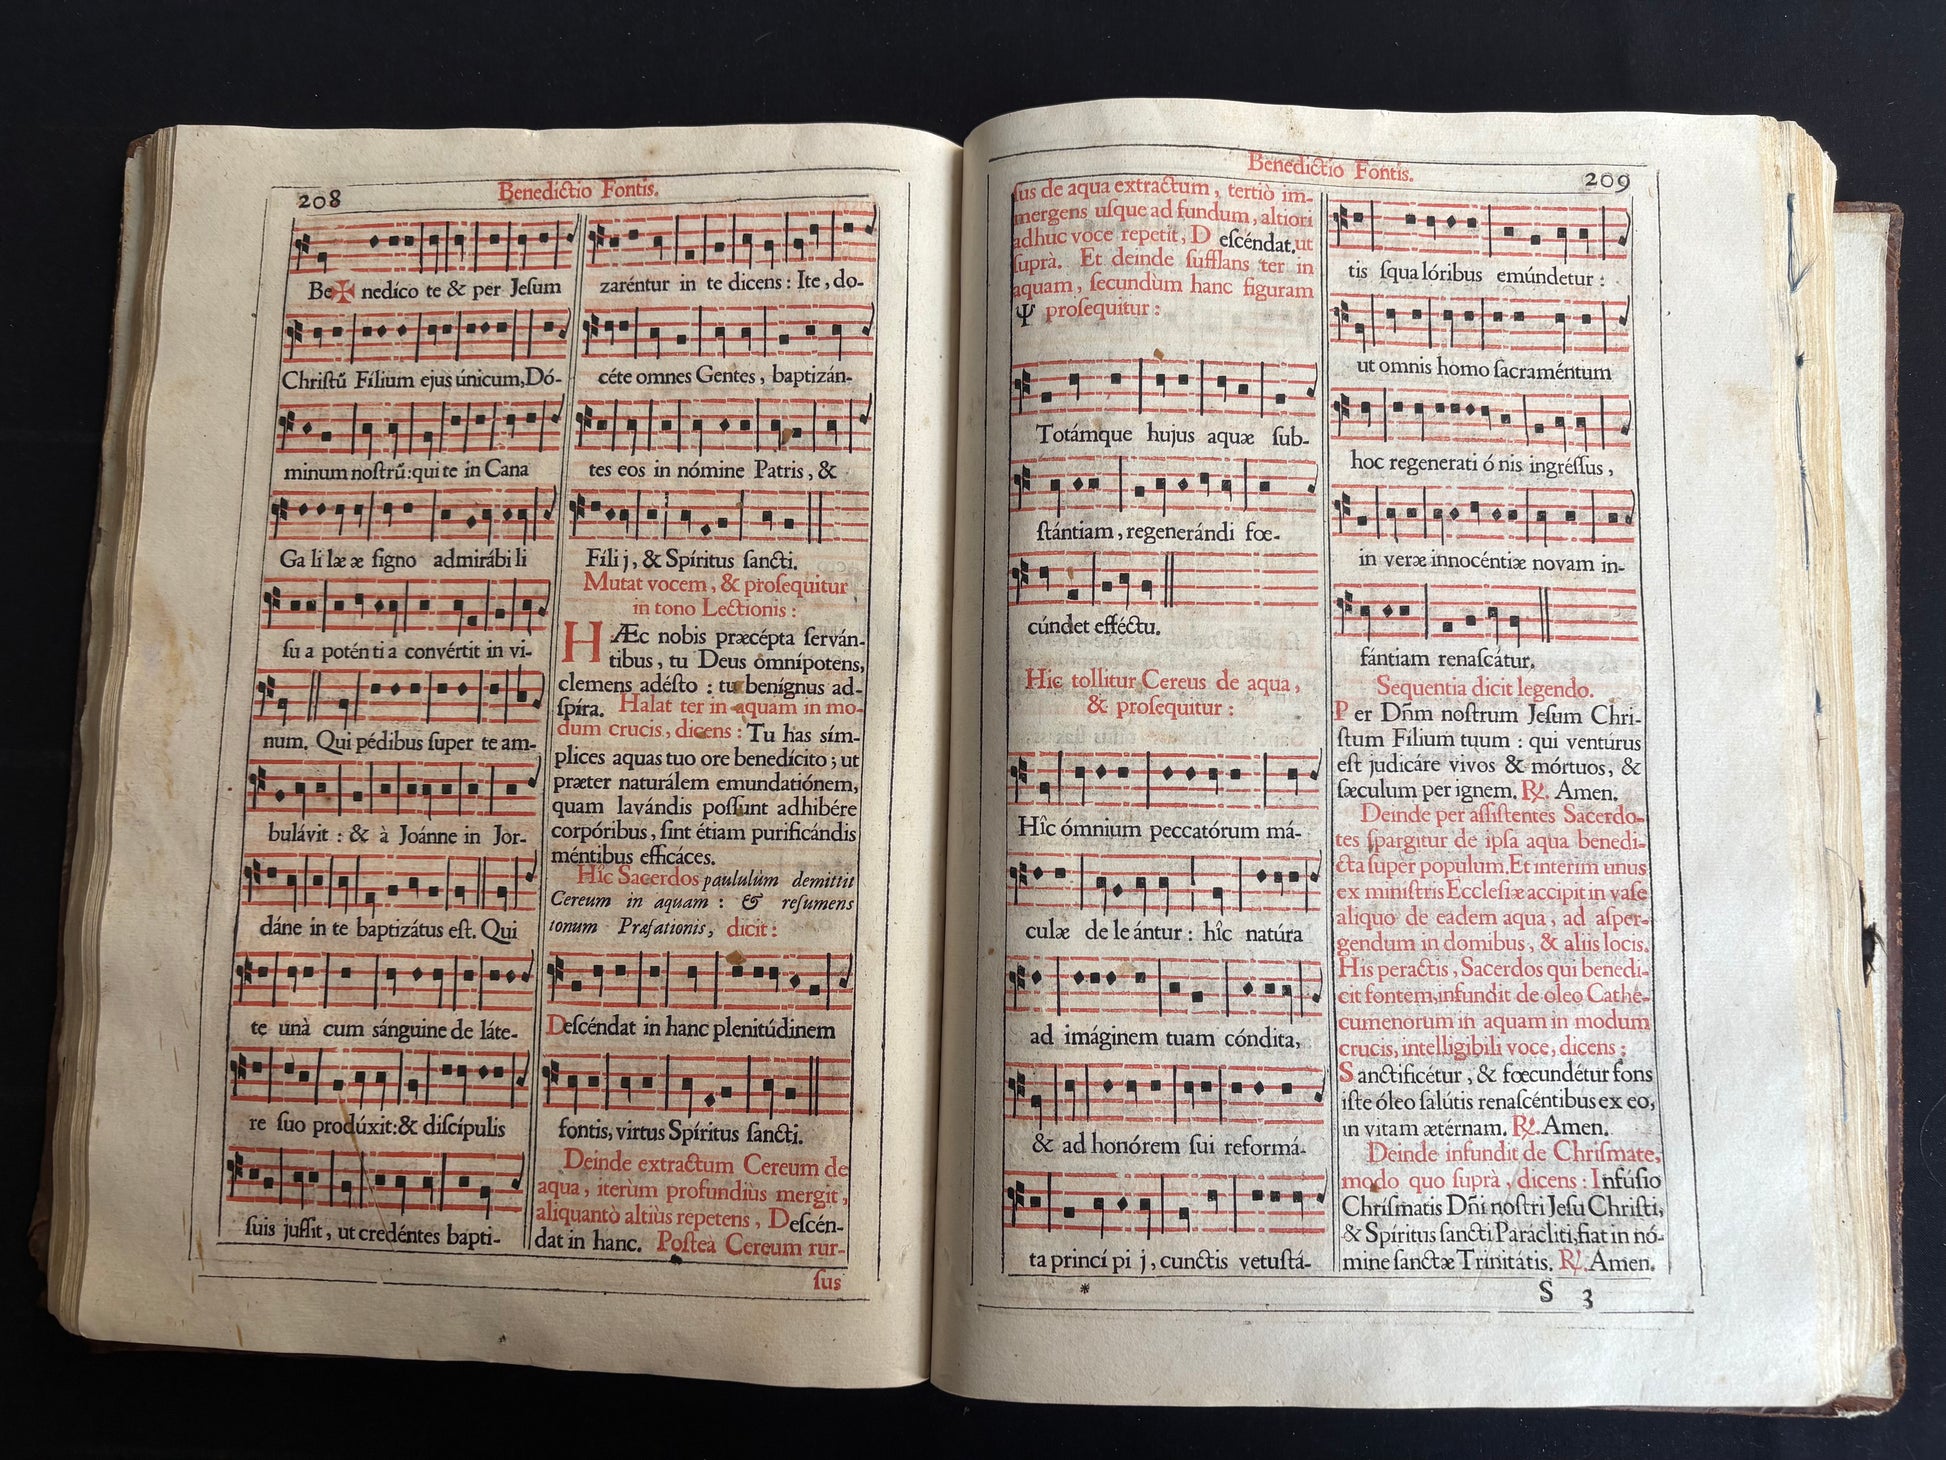 208
Benedictio Fontis.
Be✠nedíco te & per Jeſum
Chriſtũ Fílium ejus únicum, Dó-
minum noſtrũ: qui te in Cana
Ga li læ æ ſigno admirábi li
ſu a potén ti a convértit in vi-
num. Qui pédibus ſuper te am-
bulávit : & à Joánne in Jor-
dáne in te baptizátus eſt. Qui
te unà cum sánguine de láte-
re ſuo prodúxit: & diſcípulis
ſuis juſſit, ut credéntes bapti-
zaréntur in te dicens : Ite, do-
céte omnes Gentes, baptizán-
tes eos in nómine Patris, &
Fíli j, & Spíritus ſancti.
Mutat vocem, & proſequitur
in tono Lectionis :
HÆc nobis præcépta ſerván-
tibus, tu Deus omnípotens,
clemens adéſto : tu benígnus ad-
ſpíra. Halat ter in aquam in mo-
dum crucis, dicens : Tu has sím-
plices aquas tuo ore benedícito ; ut
præter naturálem emundatiónem,
quam lavándis poſſunt adhibére
corpóribus, ſint étiam purificándis
méntibus efficáces.
Hîc Sacerdos paululùm demittit
Cereum in aquam : & reſumens
tonum Præfationis, dicit :
Deſcéndat in hanc plenitúdinem
fontis, virtus Spíritus ſancti.
Deinde extractum Cereum de
aqua, iterùm profundiùs mergit,
aliquantò altiùs repetens, Deſcén-
dat in hanc. Poſteà Cereum rur-
ſus
Benedictio Fontis.
209
ſus de aqua extractum, tertiò im-
mergens uſque ad fundum, altiori
adhuc voce repetit, Deſcéndat. ut
ſuprà. Et deinde ſufflans ter in
aquam, ſecundùm hanc figuram
Ψ proſequitur :
Totámque hujus aquæ ſub-
ſtántiam, regenerándi fœ-
cúndet efféctu.
Hîc tollitur Cereus de aqua,
& proſequitur :
Hîc ómnium peccatórum má-
culæ de le ántur : hîc natúra
ad imáginem tuam cóndita,
& ad honórem ſui reformá-
ta princí pi j, cunctis vetuſtá-
*
tis ſqua lóribus emúndetur :
ut omnis homo ſacraméntum
hoc regenerati ó nis ingréſſus,
in veræ innocéntiæ novam in-
fántiam renaſcátur.
Sequentia dicit legendo.
Per Dñm noſtrum Jeſum Chri-
ſtum Fílium tuum : qui ventúrus
eſt judicáre vivos & mórtuos, &
ſæculum per ignem. ℟. Amen.
Deinde per aſſiſtentes Sacerdo-
tes ſpargitur de ipſa aqua benedi-
cta ſuper populum. Et interim unus
ex miniſtris Eccleſiæ accipit in vaſe
aliquo de eadem aqua, ad aſper-
gendum in domibus, & aliis locis.
His peractis, Sacerdos qui benedi-
cit fontem, infundit de oleo Cathe-
cumenorum in aquam in modum
crucis, intelligibili voce, dicens :
Sanctificétur, & fœcundétur fons
iſte óleo ſalútis renaſcéntibus ex eo,
in vitam ætérnam. ℟. Amen.
Deinde infundit de Chriſmate,
modo quo ſuprà, dicens : Infúſio
Chriſmatis Dñi noſtri Jeſu Chriſti,
& Spíritus ſancti Parácliti, fiat in nó-
mine ſanctæ Trinitátis. ℟. Amen.
S 3